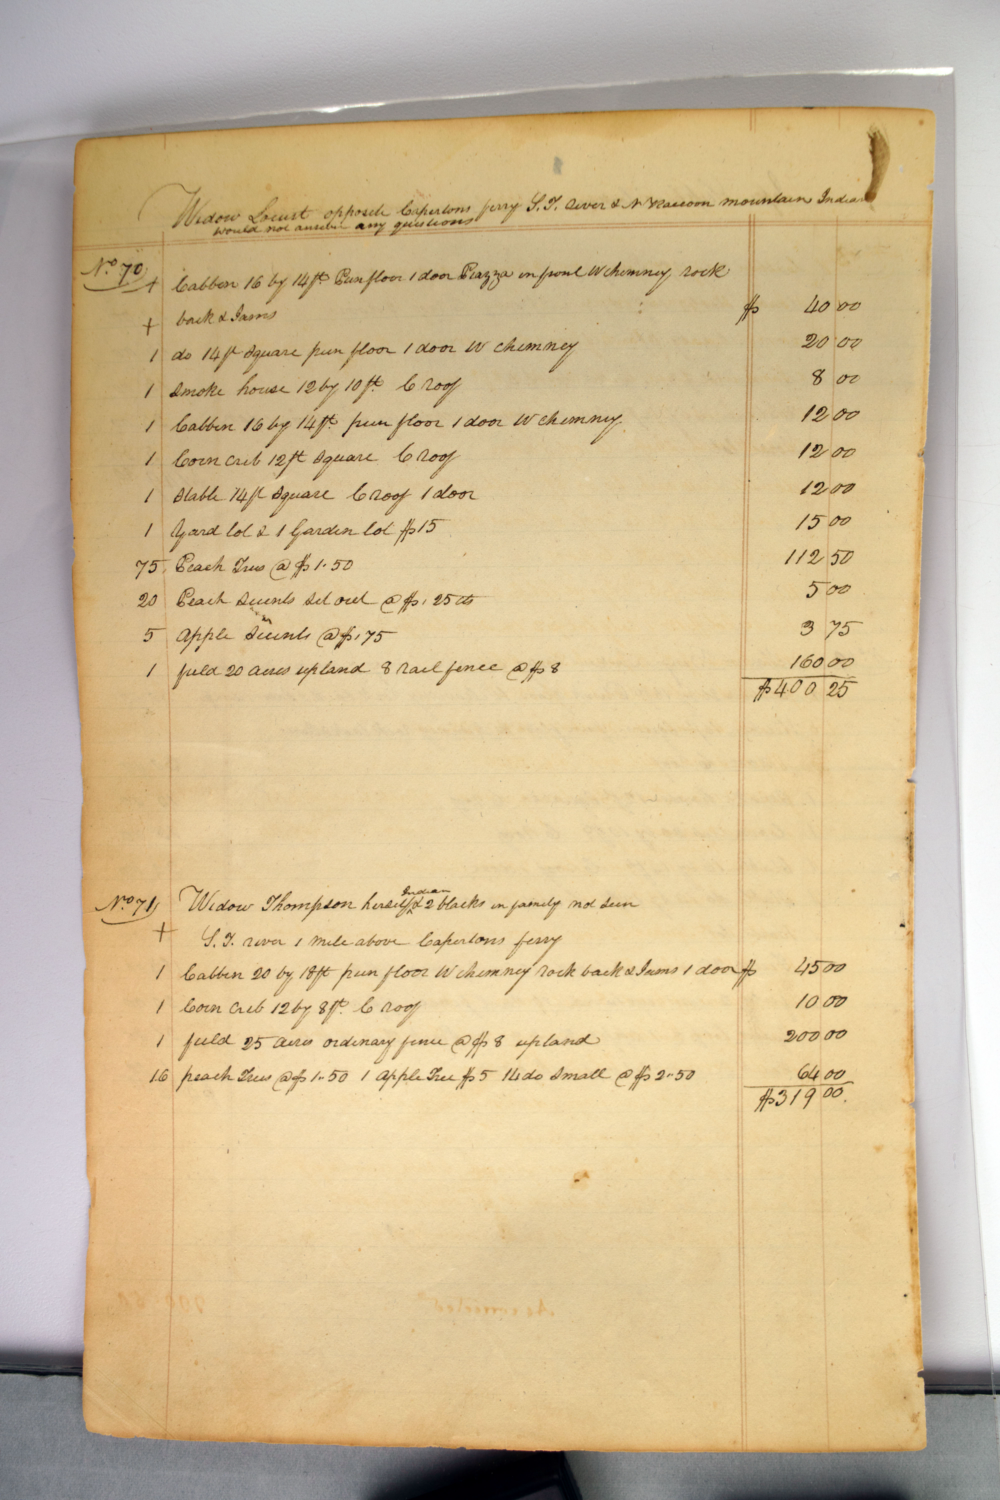 Widow Locust opposite Capertons ferry S. T. river & N Raccoon mountain Indian
would not answer any questions
No 70
+ Cabben 16 by 14ft Pun floor 1 door Piazza in front W chimney rock
+ back & Jams $ 40 00
1 do 14ft square pun floor 1 door W chimney 20 00
1 Smoke house 12 by 10ft C roof 8 00
1 Cabben 16 by 14ft pun floor 1 door W chimney 12 00
1 Corn Crib 12ft square C roof 12 00
1 Stable 14ft square C roof 1 door 12 00
1 Yard lot & 1 Garden lot $15 15 00
75 Peach Trees @ $1.50 112 50
20 Peach Scients set out @ $.25cts 5 00
5 Apple Scients @ $.75 3 75
1 field 20 acres upland 8 rail fence @ $8 160 00
$400 25
No 71 Widow Thompson herself Indian & 2 blacks in family not seen
+ S. T. river 1 mile above Capertons ferry
1 Cabben 20 by 18ft pun floor W chimney rock back & Jams 1 door $ 45 00
1 Corn Crib 12 by 8ft C roof 10 00
1 field 25 acres ordinary fence @ $8 upland 200 00
16 peach Trees @ $1.50 1 Apple Tree $5 14 do small @ $2.50 64 00
$319 00